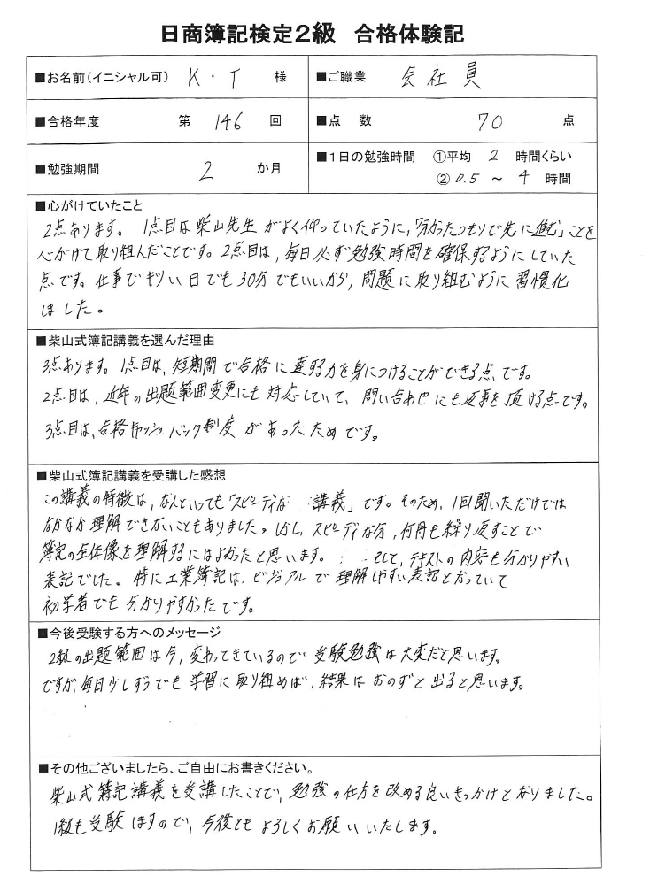 日商簿記検定2級 合格体験記
■お名前(イニシャル可) K・T 様
■ご職業 会社員
■合格年度 第 146 回
■点 数 70 点
■勉強期間 2 か月
■1日の勉強時間 ①平均 2 時間くらい
②0.5 ～ 4 時間
■心がけていたこと
2点あります。1点目は柴山先生がよく仰っていたように,「分かったつもりで先に進む」ことを
心がけて取り組んだことです。2点目は,毎日必ず勉強時間を確保するようにしていた
点です。仕事でキツい日でも30分でもいいから,問題に取り組むように習慣化
しました。
■柴山式簿記講義を選んだ理由
3点あります。1点目は,短期間で合格に 力を身につけることができる点です。
2点目は,近年の出題範囲変更にも対応していて,問い合わせにも返事を頂ける点です。
3点目は,合格キャッシュバック制度があったためです。
■柴山式簿記講義を受講した感想
この講義の特徴は,なんといっても「スピーディな 講義」です。そのため,1回聞いただけでは
なかなか理解できないこともありました。しかし,スピーディな分,何度も繰り返すことで
簿記の全体像を理解するにはよかったと思います。 そして,テキストの内容も分かりやすい
表記でした。特に工業簿記は,ビジュアルで理解しやすい表記となっていて
初学者でも分かりやすかったです。
■今後受験する方へのメッセージ
2級の出題範囲は今,変わってきているので受験勉強は大変だと思います。
ですが,毎日少しずつでも学習に取り組めば,結果はおのずと出ると思います。
■その他ございましたら、ご自由にお書きください。
柴山式簿記講義を受講したことで,勉強の仕方を改める良いきっかけとなりました。
1級も受験しますので,今後ともよろしくお願いいたします。